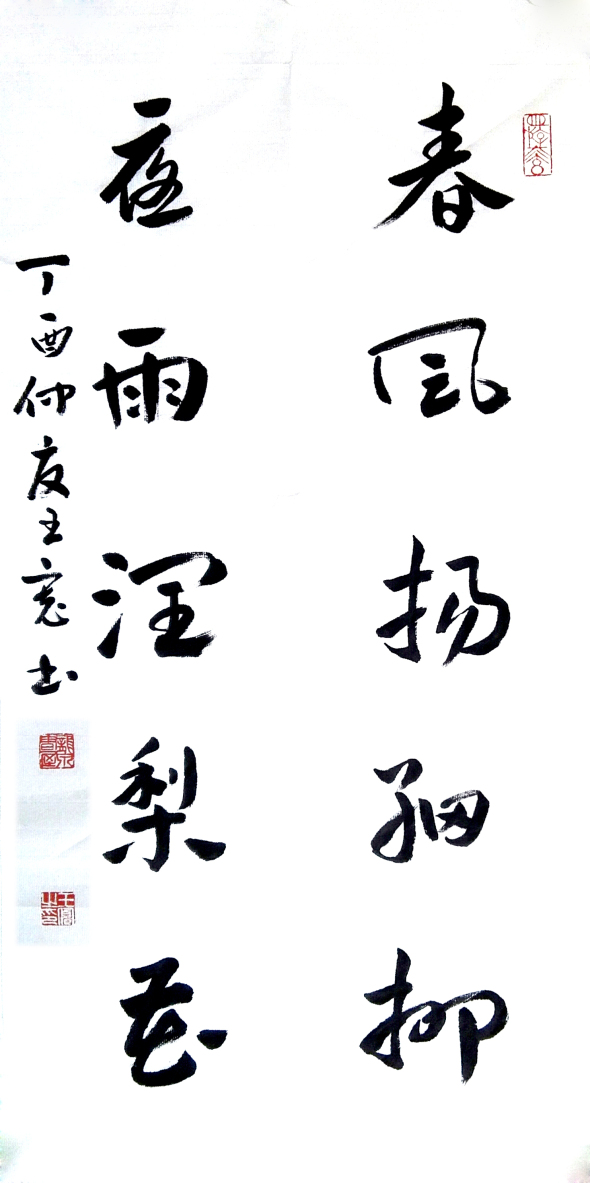 春风扬细柳
夜雨润梨花
丁酉仲夏王宽书